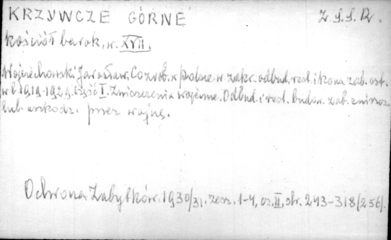 KRZYWCZE GÓRNE Z.S.S.R.
Kościół barok. w. XVII.
Wojciechowski Jarosław. Co zrob. w Polsce w zakr. odbud. rest. i konserw. zab. szt.
w l. 1919-1929. Część I. Zniszczenia wojenne. Odbud. i rest. budow. zab. zniszcz.
lub uszkodz. przez wojnę.
Ochrona Zabytków. 1930/31. zesz. 1-4, cz. II, str. 243-318/256/.